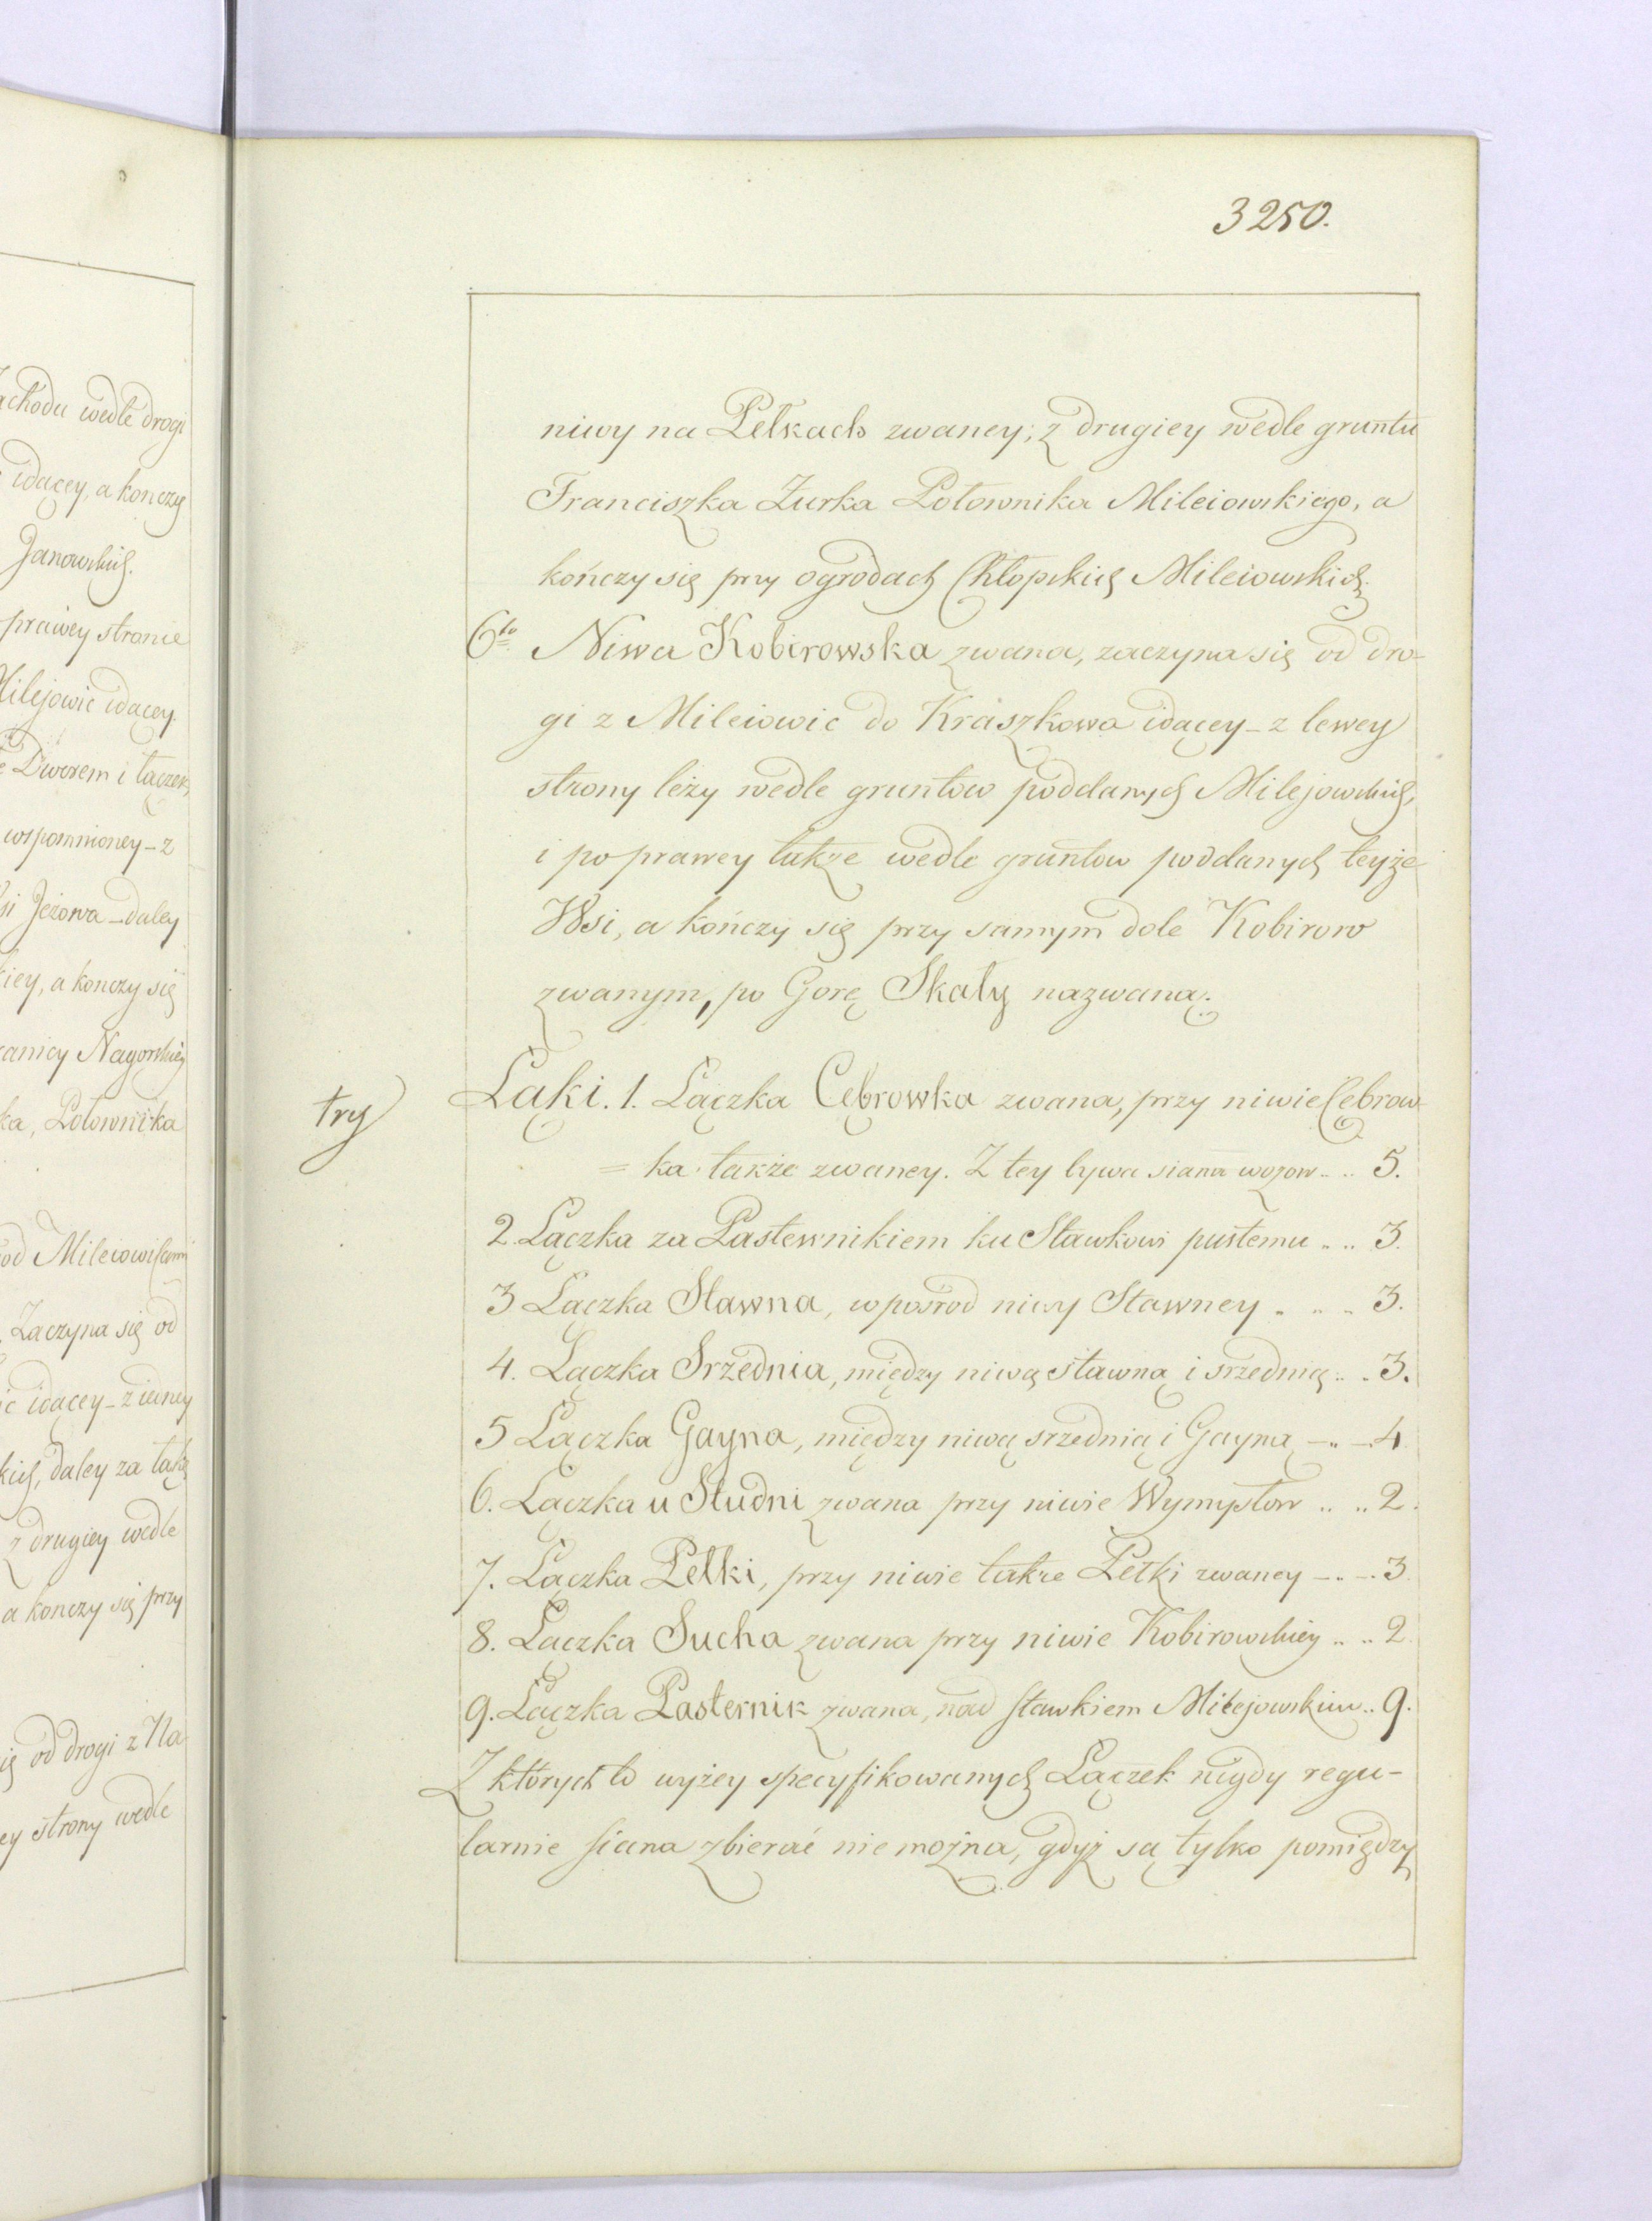 3250.
niwy na Pełkach zwaney; z drugiey wedle gruntu
Franciszka Zurka Połownika Mileiowskiego, a
kończy się przy ogrodach Chłopskich Mileiowskich.
6to Niwa Kobirowska zwana, zaczyna się od dro-
gi z Mileiowic do Kraszkowa idącey – z lewey
strony leży wedle gruntow poddanych Milejowskich,
i po prawey także wedle gruntow poddanych teyże
Wsi, a kończy się przy samym dole Kobirow
zwanym, po Gorę Skały nazwaną.
try
Łąki. 1. Łączka Cębrowka zwana, przy niwie Cębrow-
= ka także zwaney. Z tey bywa siana wozow .. .. 5.
2. Łączka za Pastewnikiem ku Stawkowi pustemu .. .. 3.
3 Łączka Stawna, wpośrod niwy Stawney .. .. .. 3.
4. Łączka Srzednia, między niwą stawną i srzednią .. .. 3.
5 Łączka Gayna, między niwą srzednią i Gayną – .. – 4
6. Łączka u Studni zwana przy niwie Wymysłow .. .. 2.
7. Łączka Pełki, przy niwie także Pełki zwaney – .. – 3.
8. Łączka Sucha zwana przy niwie Kobirowskiey .. .. 2.
9. Łączka Pasternik zwana, nad stawkiem Milejowskim .. 9.
Z których to wyżey specyfikowanych Łączek nigdy regu-
larnie siana zbierać nie można, gdyż są tylko pomiędzy
achodu wedle drogi
idącey, a konczy
Janowskich.
prawey stronie
Milejowic idącey.
Dworem i łączek,
wspomnioney – z
si Jeżowa – daley
kiey, a konczy się
canicy Nagorskiey
ka, Połownika
od Mileiowicami
Zaczyna się od
ic idącey – z iedney
kich, daley za łąką
z drugiey wedle
a konczy się przy
ię od drogi z Na
ey strony wedle